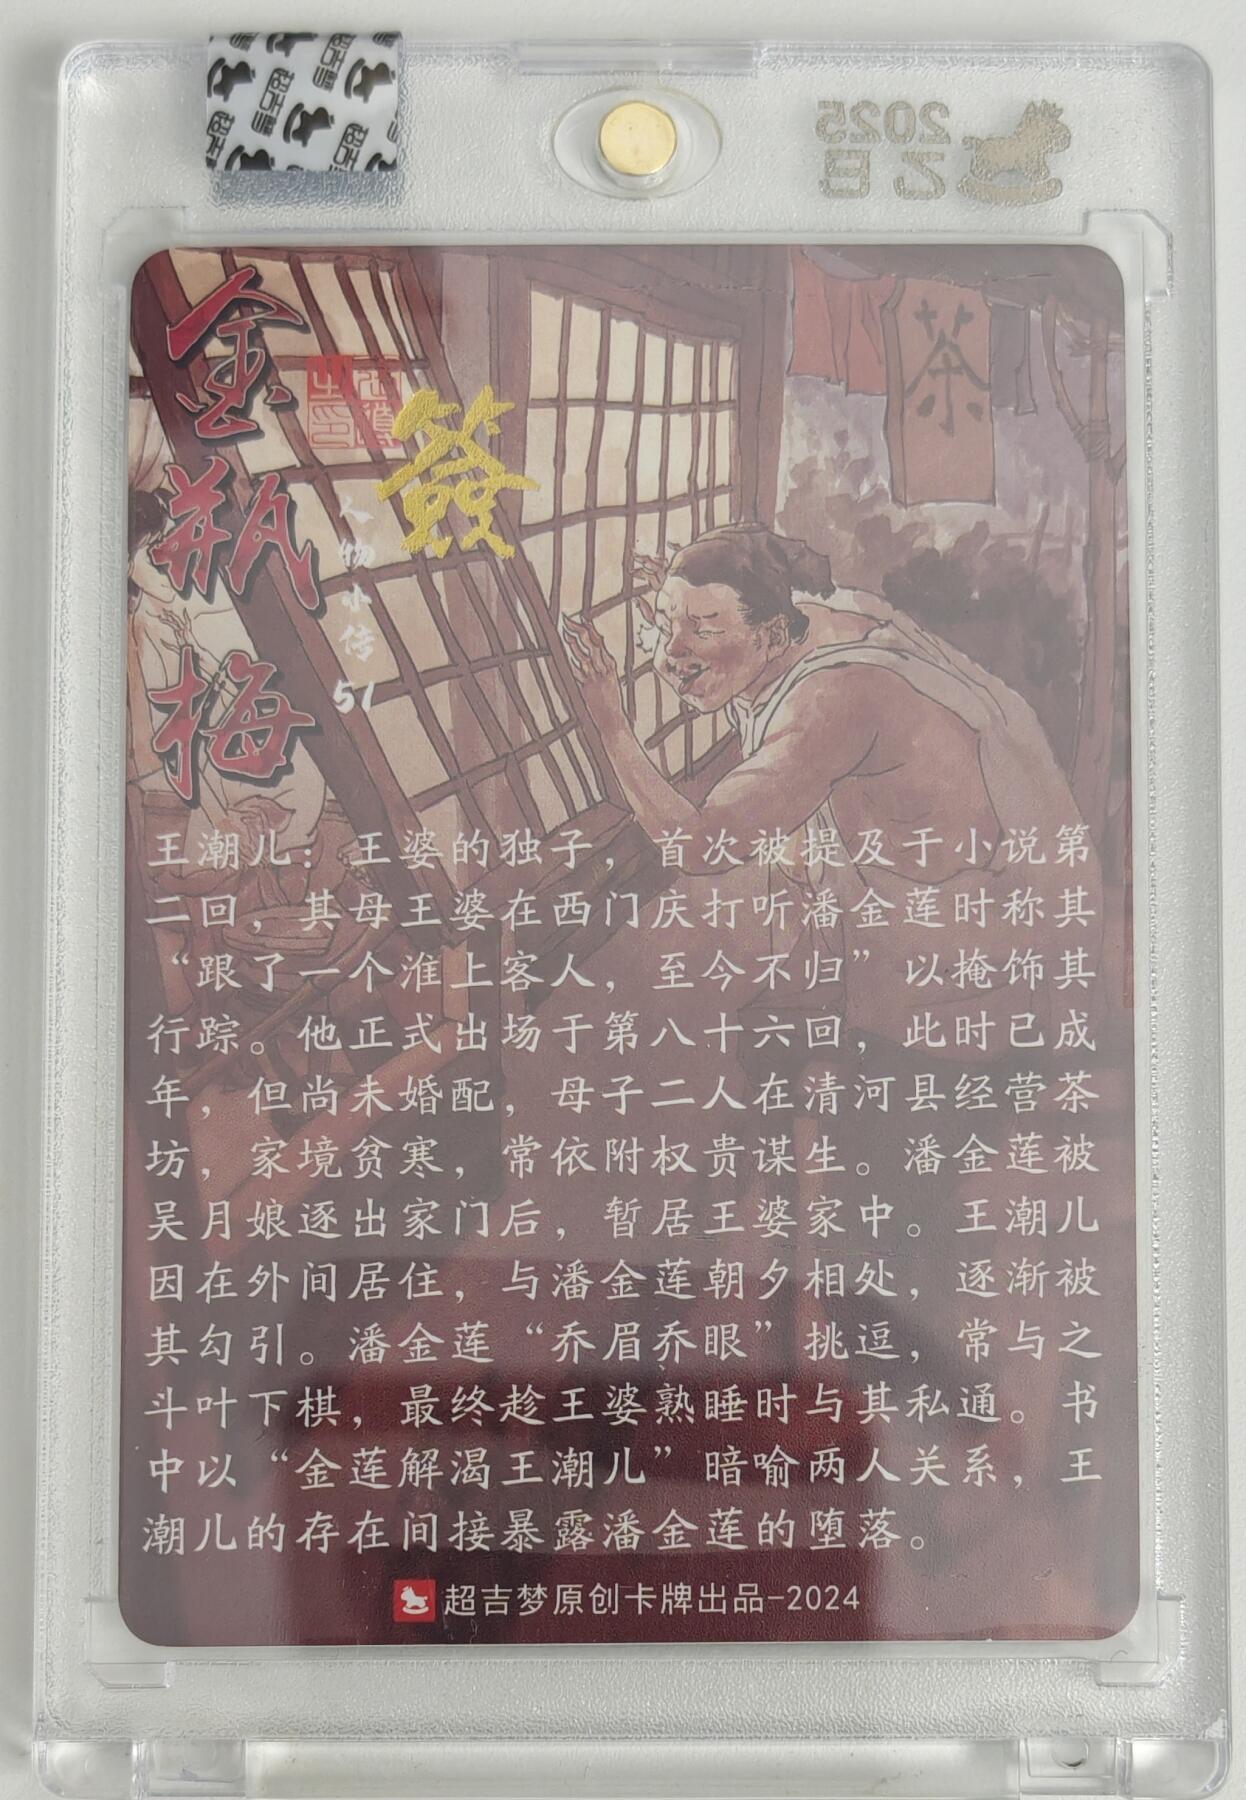 超吉梦
2025
乙巳
金瓶梅
簽
人物小传
51
茶
王潮儿：王婆的独子，首次被提及于小说第
二回，其母王婆在西门庆打听潘金莲时称其
“跟了一个淮上客人，至今不归”以掩饰其
行踪。他正式出场于第八十六回，此时已成
年，但尚未婚配，母子二人在清河县经营茶
坊，家境贫寒，常依附权贵谋生。潘金莲被
吴月娘逐出家门后，暂居王婆家中。王潮儿
因在外间居住，与潘金莲朝夕相处，逐渐被
其勾引。潘金莲“乔眉乔眼”挑逗，常与之
斗叶下棋，最终趁王婆熟睡时与其私通。书
中以“金莲解渴王潮儿”暗喻两人关系，王
潮儿的存在间接暴露潘金莲的堕落。
超吉梦原创卡牌出品-2024